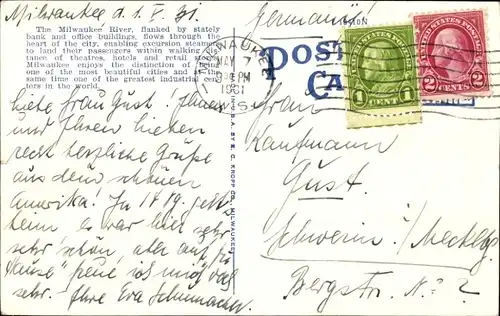 Milwaukee d. 1. V. 31.
The Milwaukee River, flanked by stately
bank and office buildings, flows through the
heart of the city, enabling excursion steamers
to land their passengers within walking dis-
tance of theatres, hotels and retail
Milwaukee enjoys the distinction of
one of the most beautiful cities and at
same time one of the greatest industrial cen-
ters in the world.
Liebe Frau Gust! Ihnen
und Ihren lieben
recht herzliche Grüße
aus dem schönen
Amerika! In 14 Tg. geht's
heim, es war hier sehr
sehr schön, aber auf zu
Hause freue ich mich
sehr. Ihre Eva Schumacher
E. C. KROPP CO., MILWAUKEE
Germany
MILWAUKEE
MAY 7
PM
1931
WIS
POST
CA
UNITED STATES POSTAGE
1 CENT 1
UNITED STATES POSTAGE
2 CENTS 2
Frau
Kaufmann
Gust
Schwerin i/Mecklbg.
Bergstr. No 2